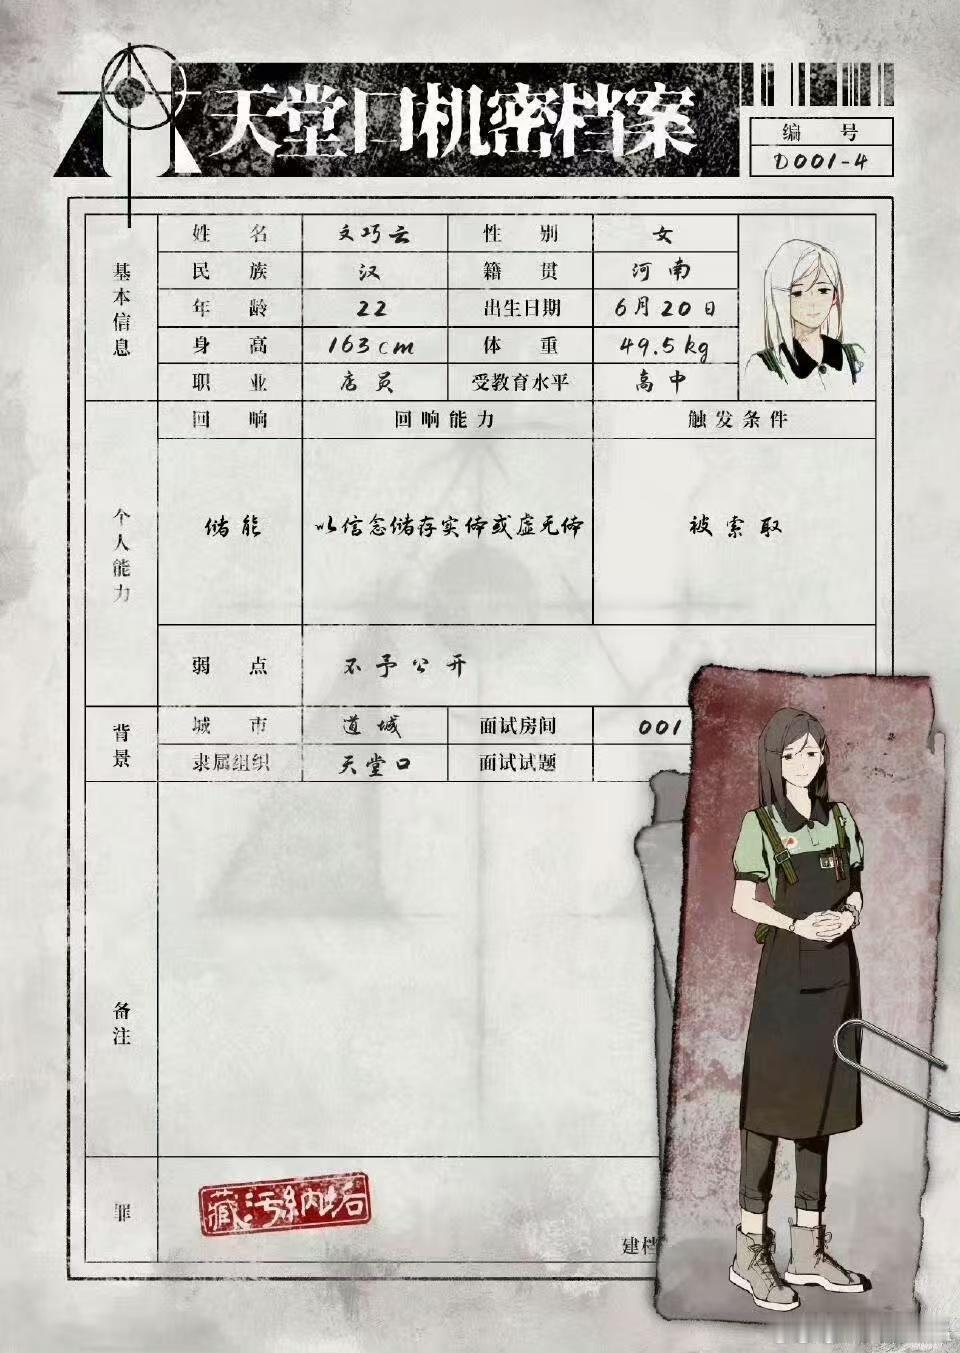 天堂口机密档案
编号
D001-4
基本信息
姓名 文巧云 性别 女
民族 汉 籍贯 河南
年龄 22 出生日期 6月20日
身高 163cm 体重 49.5kg
职业 店员 受教育水平 高中
个人能力
回响 回响能力 触发条件
储能 以信念储存实体或虚无体 被索取
弱点 不予公开
背景
城市 道城 面试房间 001
隶属组织 天堂口 面试试题
备注
罪
藏污纳垢
建档